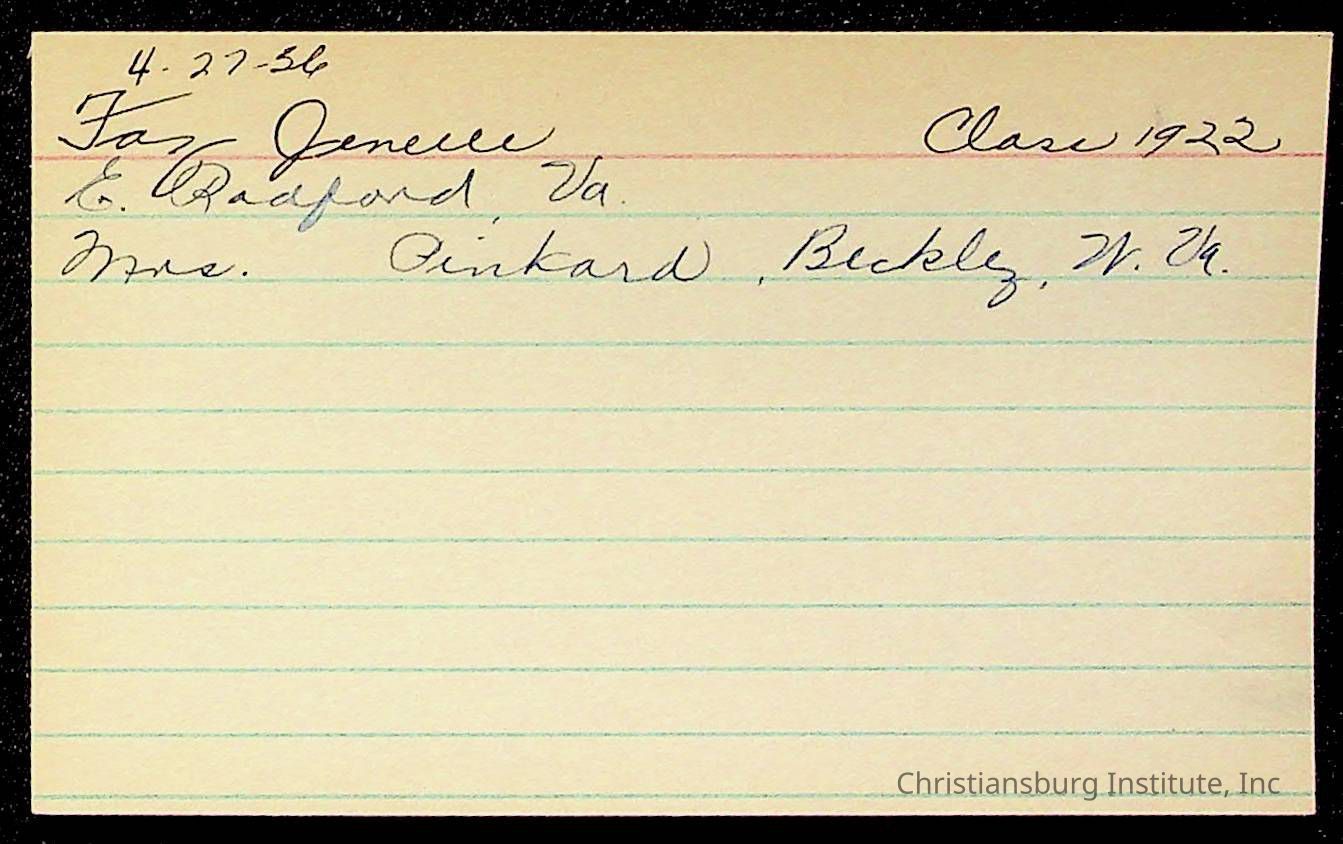 4-27-56
Fax Jenelle Class 1922
E. Radford, Va.
Mrs. Pinkard, Beckley, W. Va.
Christiansburg Institute, Inc